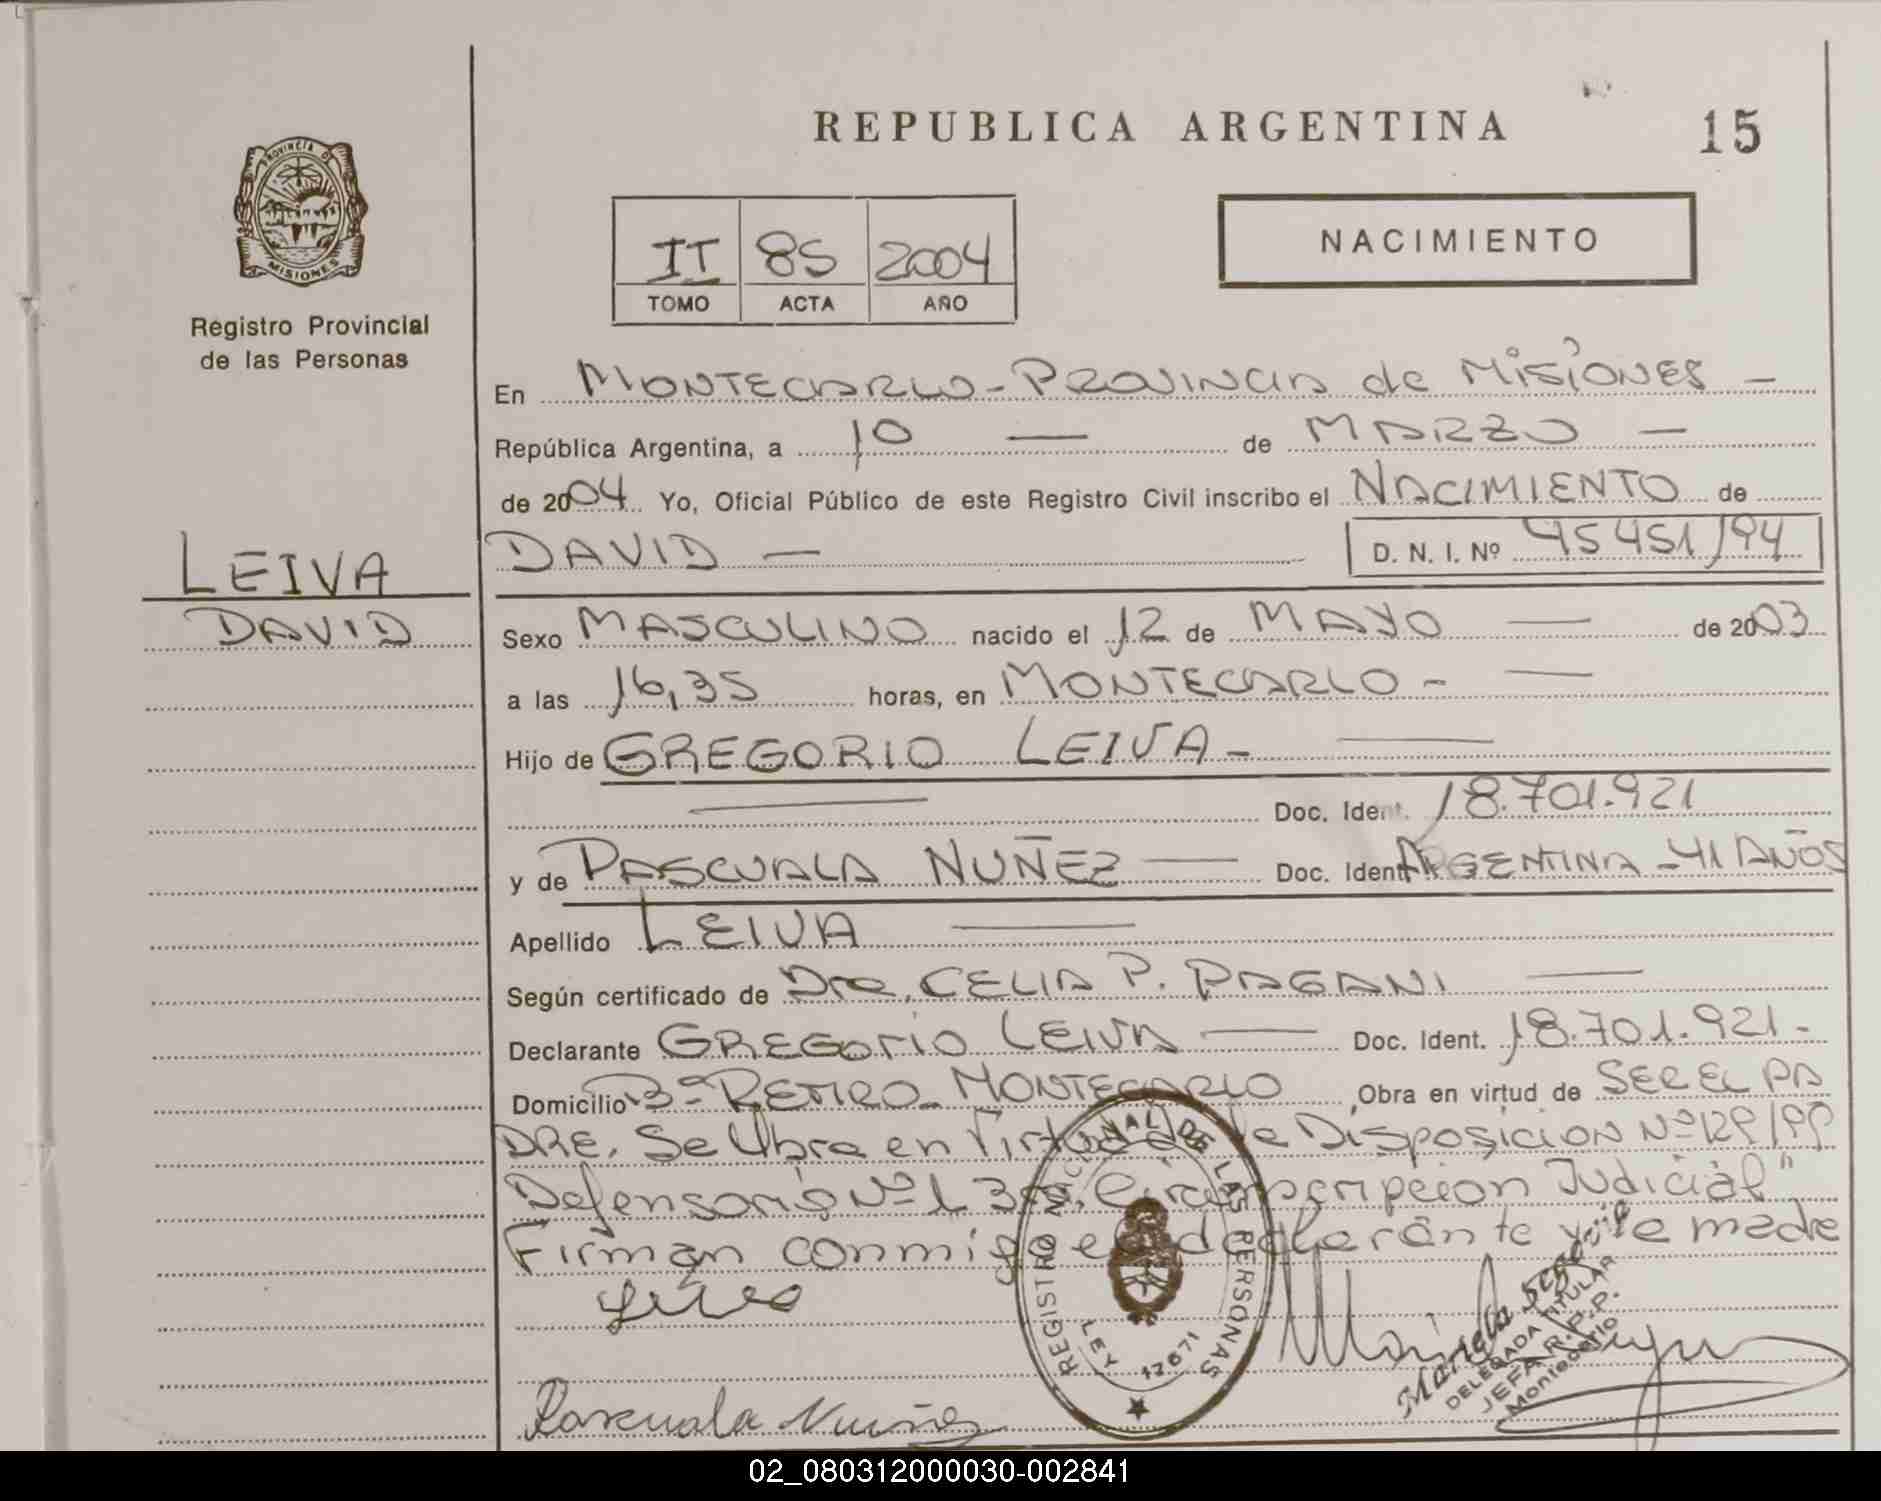 REPUBLICA ARGENTINA 15
PROVINCIA DE
MISIONES
Registro Provincial
de las Personas
II 85 2004
TOMO ACTA AÑO
NACIMIENTO
En MONTECARLO - PROVINCIA de MISIONES -
República Argentina, a 10 — de MARZO —
de 2004 Yo, Oficial Público de este Registro Civil inscribo el NACIMIENTO de
DAVID — D. N. I. Nº 45451/94
LEIVA
DAVID
Sexo MASCULINO nacido el 12 de MAYO — de 2003
a las 16,35 horas, en MONTECARLO - —
Hijo de GREGORIO LEIVA - —
— Doc. Ident. 18.701.921
y de PASCUALA NUÑEZ — Doc. Ident ARGENTINA - 41 AÑOS
Apellido LEIVA —
Según certificado de Dra. CELIA P. PAGANI —
Declarante GREGORIO LEIVA — Doc. Ident. 18.701.921 -
Domicilio Bº RETIRO - MONTECARLO Obra en virtud de SER EL PA
DRE. Se Obra en Virtud de la DISPOSICION Nº 129/99
Defensoria Nº 1 3ra. Circunscripcion Judicial"
Firman conmigo el declarante y la madre
REGISTRO NACIONAL DE LAS PERSONAS
LEY 17671
Mariela
DELEGADA TITULAR
JEFA R.P.P.
Montecarlo
Pascuala Nuñez
02_080312000030-002841